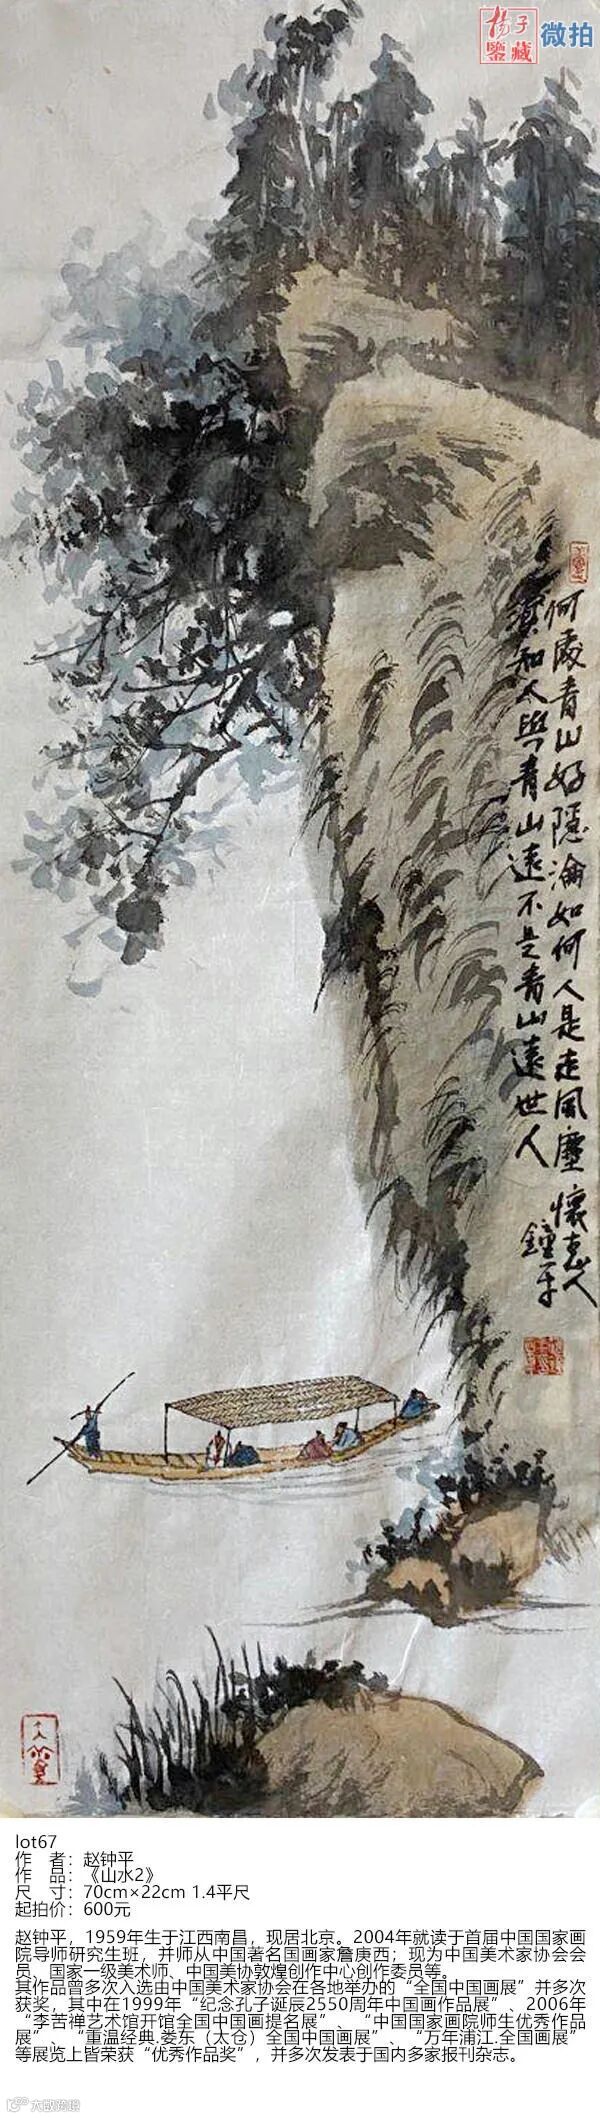 扬子
鉴藏
微拍
何处青山好隐沦如何人是走风尘
须知不与青山远不是青山远世人
怀志人
钟平
lot67
作 者：赵钟平
作 品：《山水2》
尺 寸：70cm×22cm 1.4平尺
起拍价：600元
赵钟平，1959年生于江西南昌，现居北京。2004年就读于首届中国国家画
院导师研究生班，并师从中国著名国画家詹庚西；现为中国美术家协会会
员、国家一级美术师、中国美协敦煌创作中心创作委员等。
其作品曾多次入选由中国美术家协会在各地举办的“全国中国画展”并多次
获奖，其中在1999年“纪念孔子诞辰2550周年中国画作品展”、2006年
“李苦禅艺术馆开馆全国中国画提名展”、“中国国家画院师生优秀作品
展”、“重温经典.娄东（太仓）全国中国画展”、“万年浦江.全国画展”
等展览上皆荣获“优秀作品奖”，并多次发表于国内多家报刊杂志。